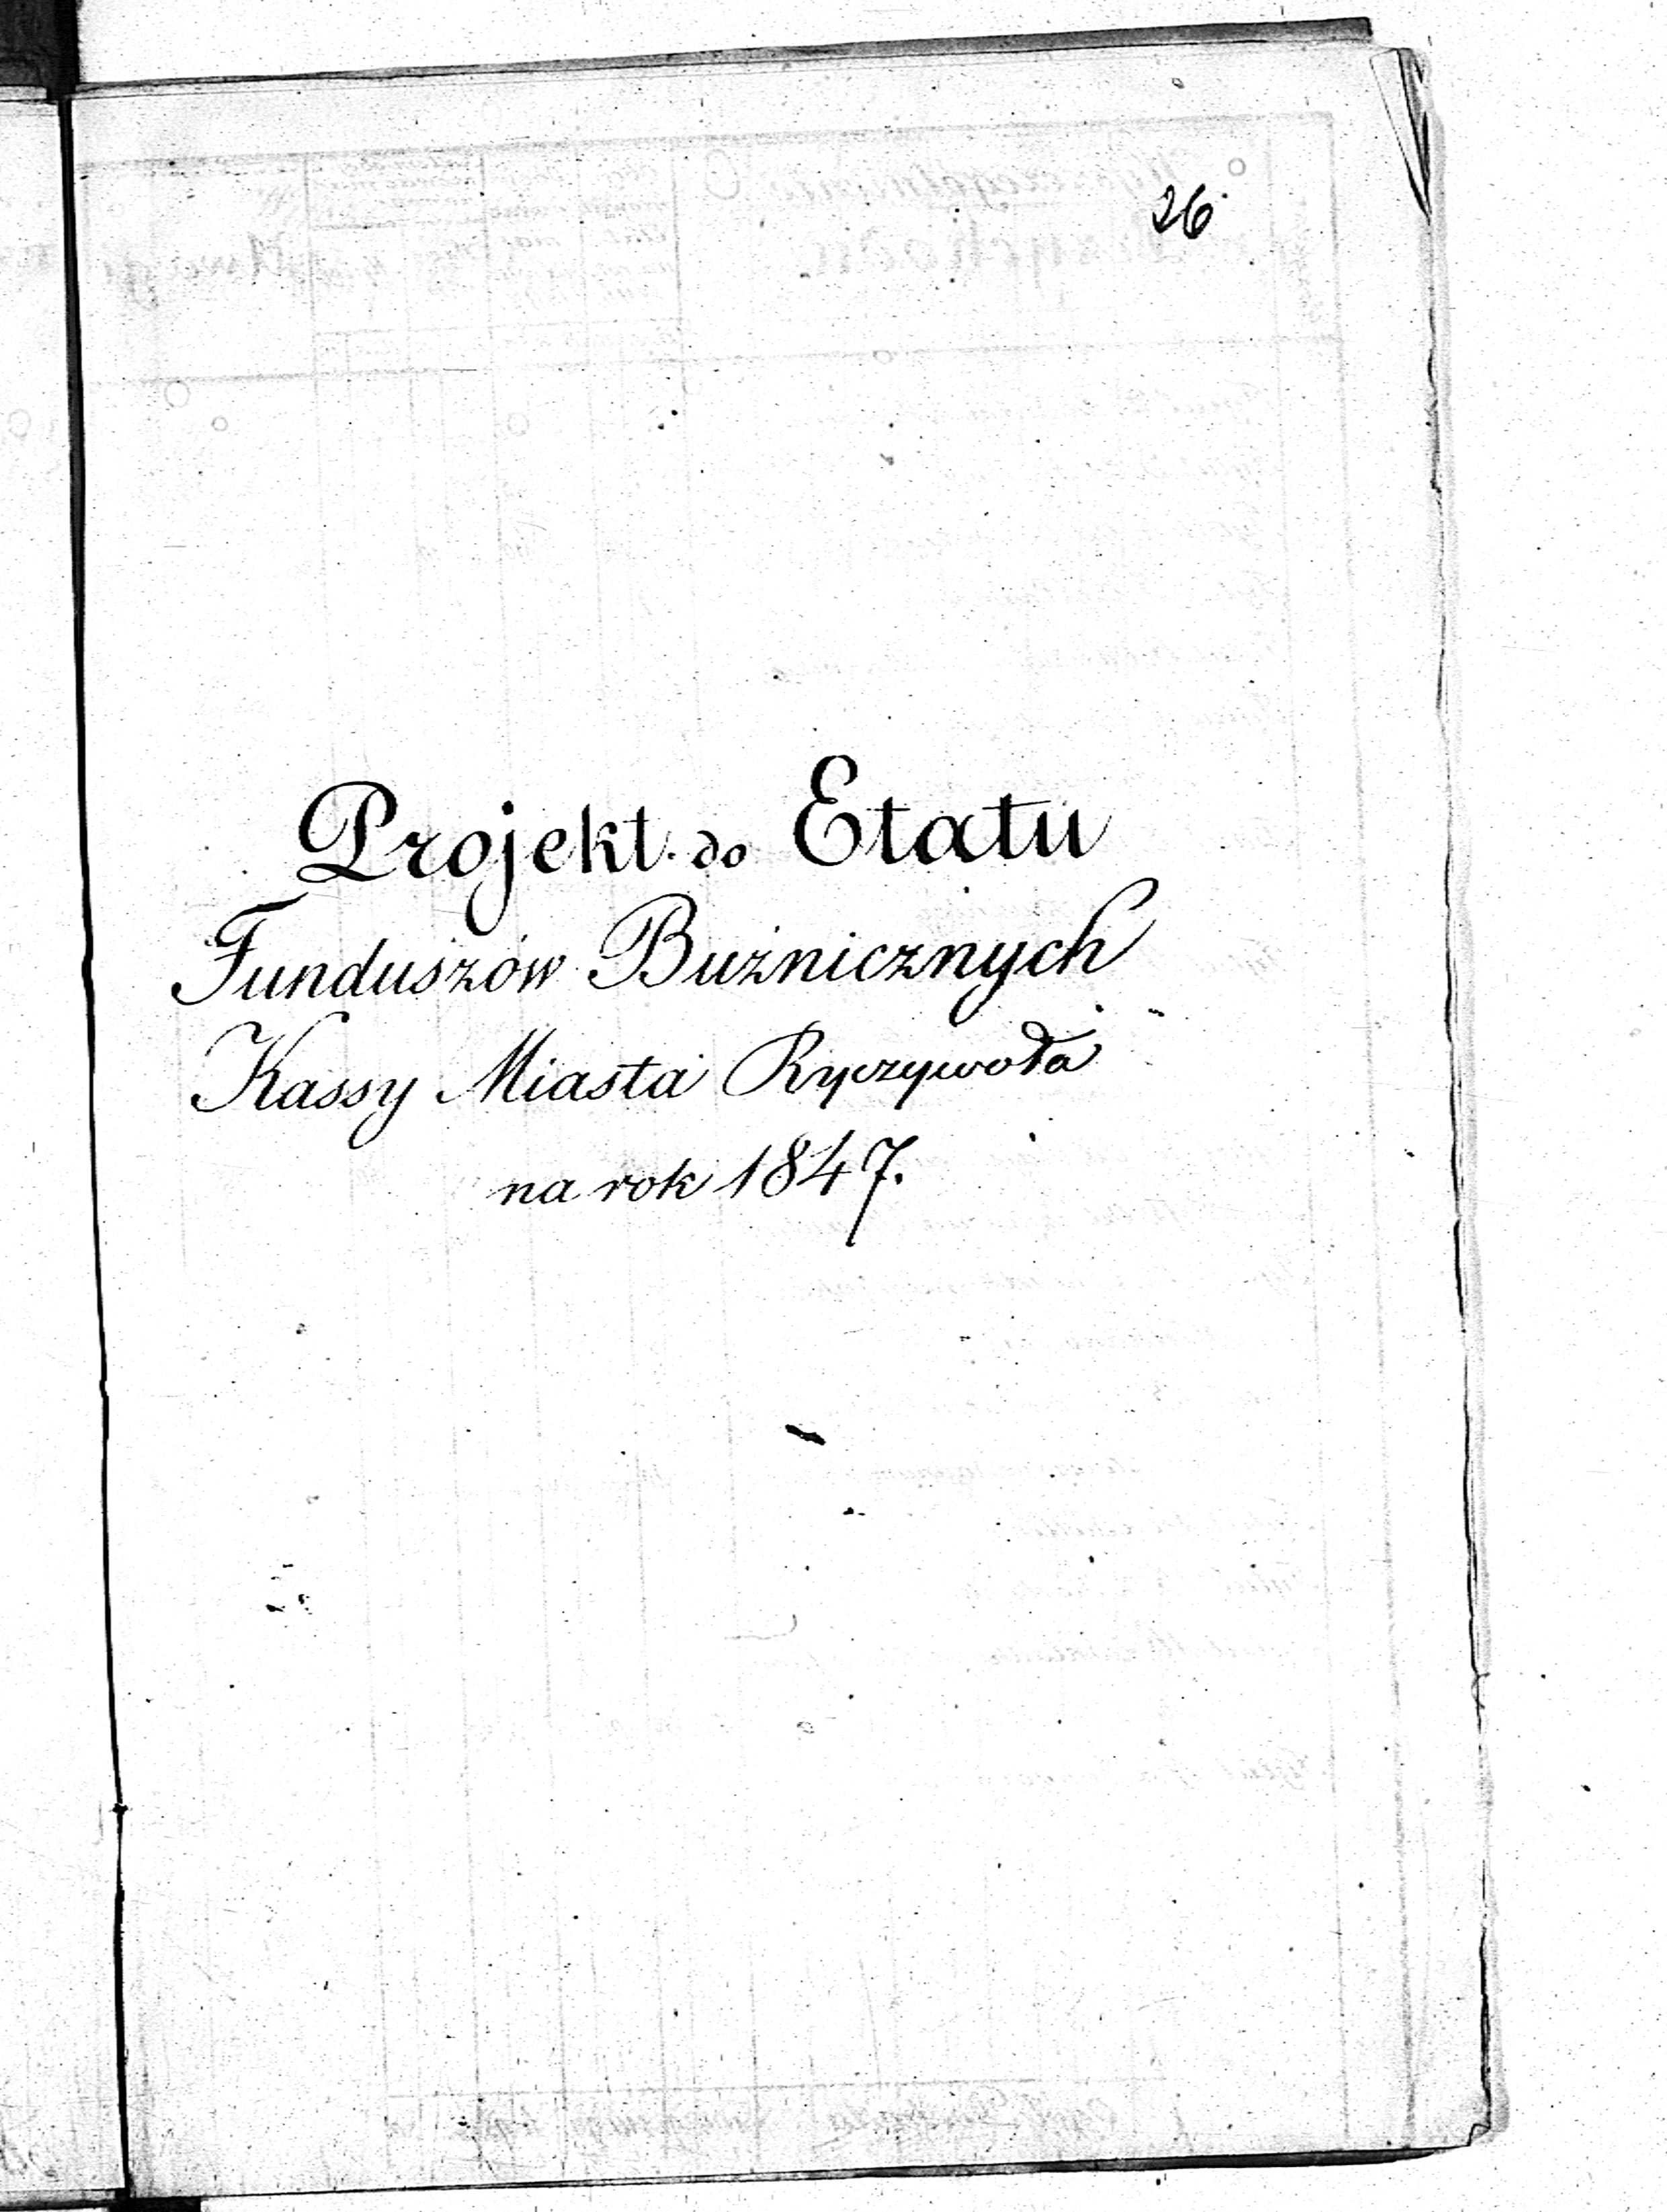 26.
Projekt do Etatu
Funduszów Buźnicznych
Kassy Miasta Ryczywoła
na rok 1847.